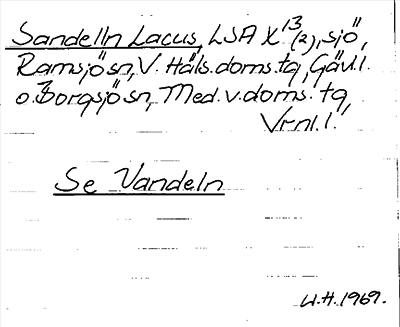 Sandelln Lacus, LSA X:13 (2), sjö,
Ramsjö sn, V. Häls. doms. tg, Gävl. l.
o. Borgsjö sn, Med. v. doms. tg,
Vrnl. l.
Se Vandeln
W.H. 1969.